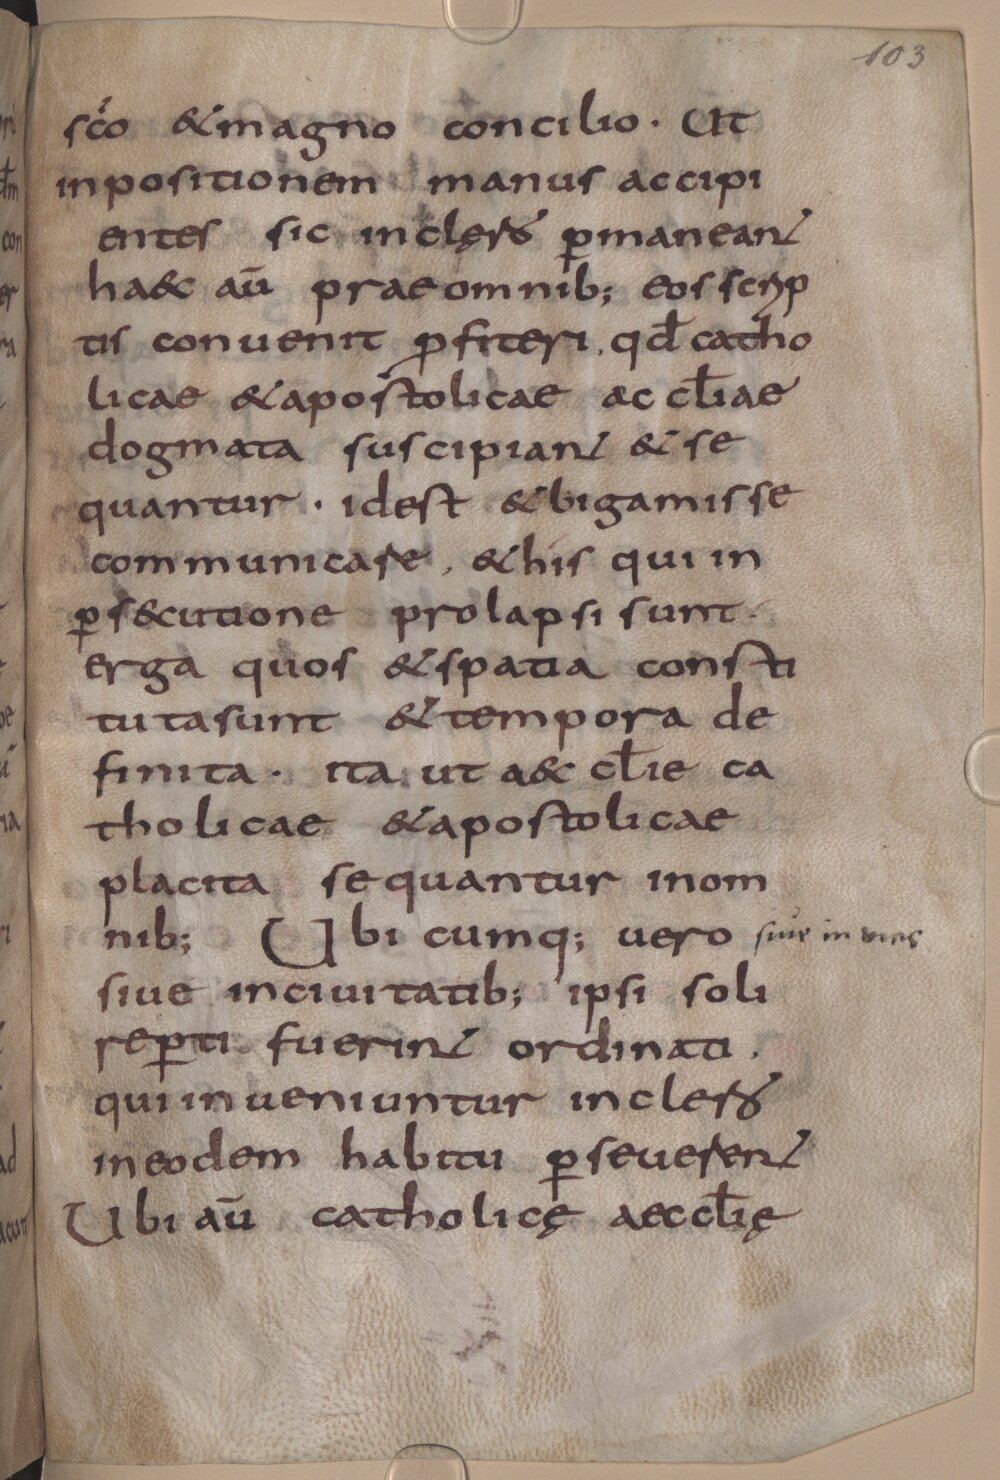 103
sc̄o &magno concilio. Ut
inpositionem manus accipi
entes sic inclęro ꝑmaneant
ha&c aū prae omnib; eos scrip
tis convenit ꝓfiteri, qđ catho
licae &apostolicae aecclīae
dogmata suscipiant & se
quantur. idest &bigamis se
communicare, &his qui in
ꝑs&cutione prolapsi sunt.
erga quos &spatia consti
tuta sunt &tempora de
finita. ita ut a&cclīe ca
tholicae &apostolicae
placita sequantur in om
nib; Ubi cumq; uero siue in uicis
siue inciuitatib; ipsi soli
reꝑti fuerint ordinati,
qui inueniuntur inclero
ineodem habitu ꝑseuerent
Ubi aū catholicę aecclīę